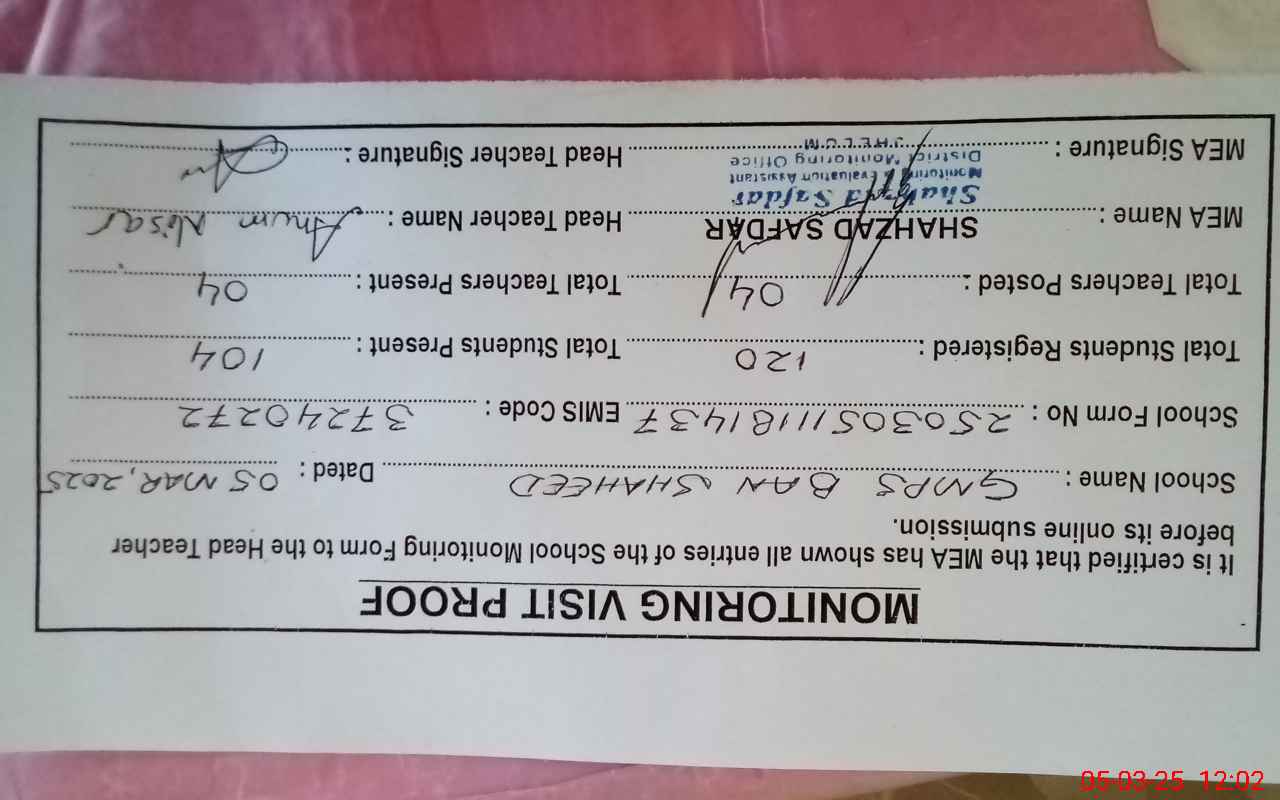 MONITORING VISIT PROOF
It is certified that the MEA has shown all entries of the School Monitoring Form to the Head Teacher
before its online submission.
School Name : GMPS BAN SHAHEED Dated : 05 MAR, 2025
School Form No : 250305111181437 EMIS Code : 37240272
Total Students Registered : 120 Total Students Present : 104
Total Teachers Posted : 04 Total Teachers Present : 04
MEA Name : SHAHZAD SAFDAR Head Teacher Name : Anum Nisar
Shahzad Safdar
Monitoring & Evaluation Assistant
District Monitoring Office
JHELUM
MEA Signature : Head Teacher Signature :
05-03-25 12:02